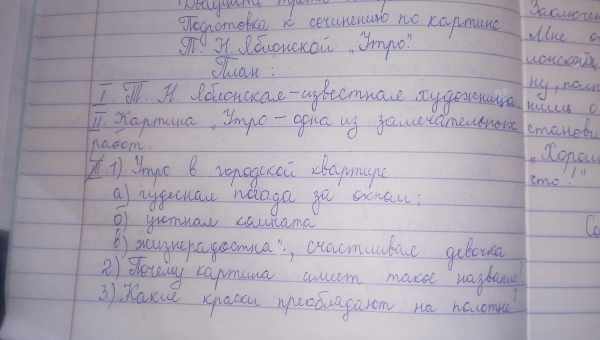 Двадцать
Подготовка к сочинению по картине
Т. Н. Яблонской „Утро".
План:
I. Т. Н Яблонская – известная художница
II. Картина „Утро – одна из замечательных
работ.
1) Утро в городской квартире
а) чудесная погода за окном;
б) уютная комната
в) жизнерадостная, счастливая девочка
2) Почему картина имеет такое название?
3) Какие краски преобладают на полотне?
Заключен
Мне о
лонской
ну, пом
нила о
станови
„Хорош
что!"
Со